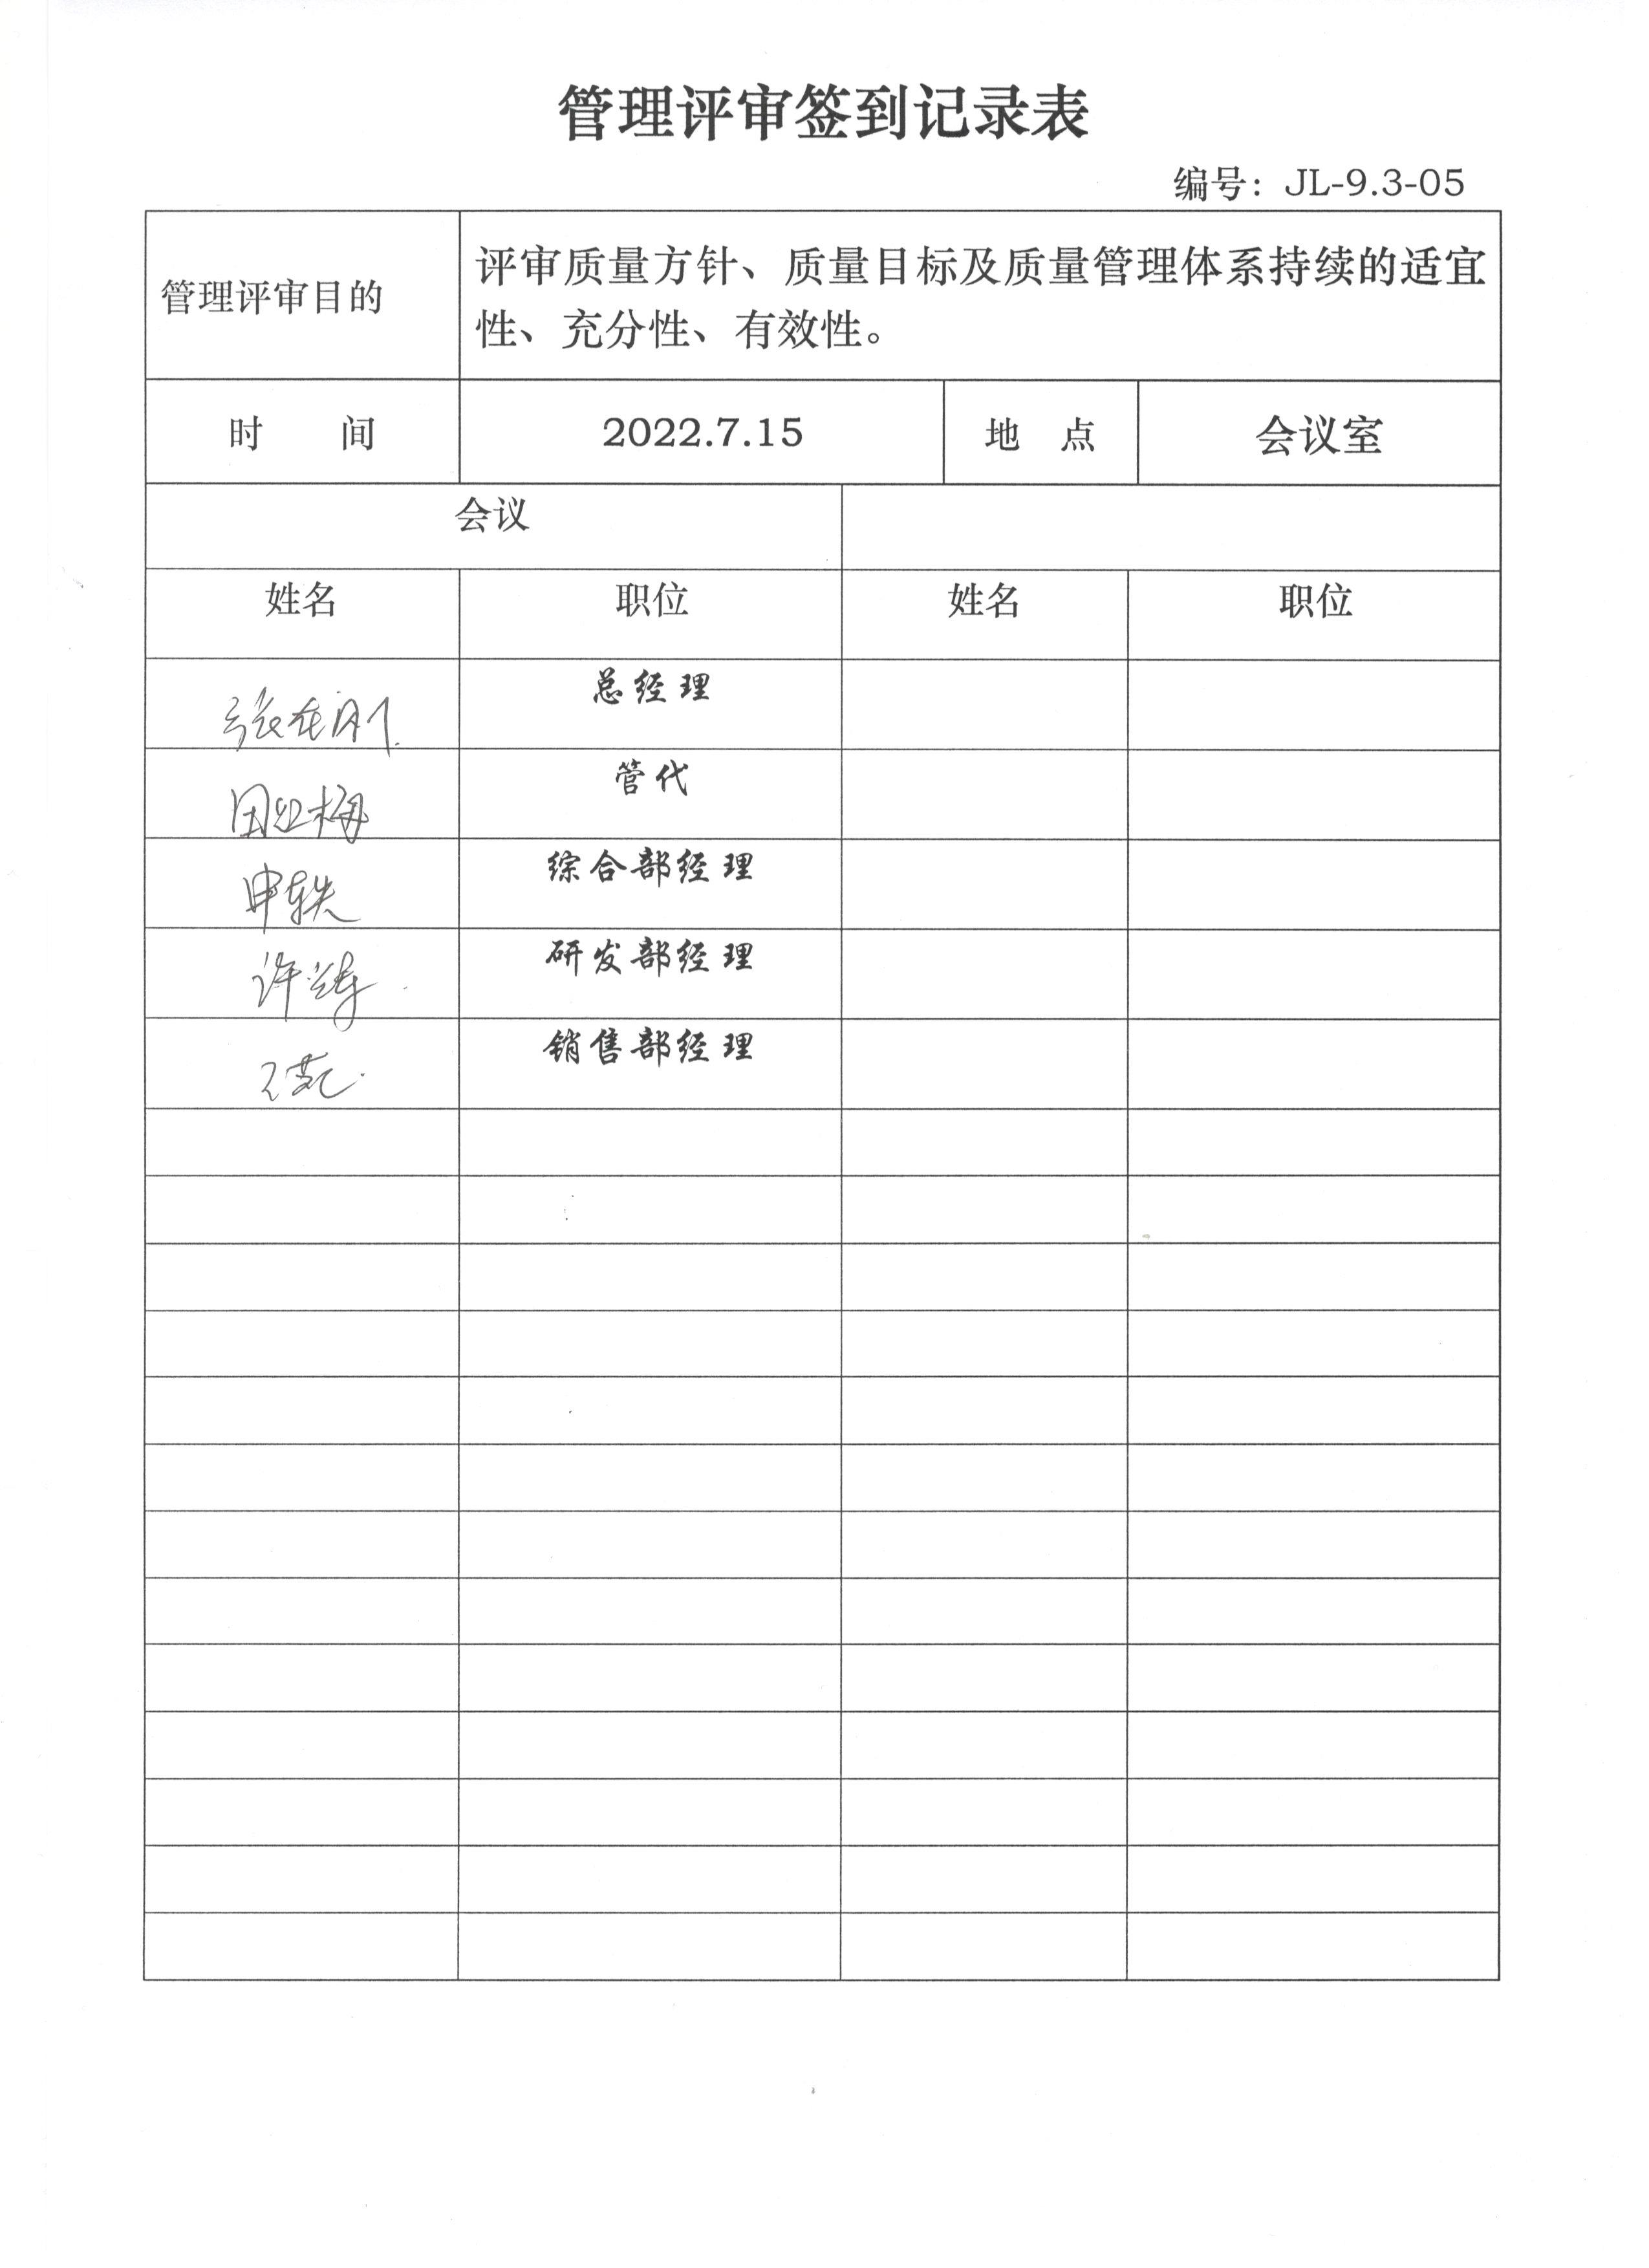 管理评审签到记录表
编号：JL-9.3-05
管理评审目的
评审质量方针、质量目标及质量管理体系持续的适宜
性、充分性、有效性。
时 间 2022.7.15 地 点 会议室
会议
姓名 职位 姓名 职位
总经理
管代
申轶 综合部经理
研发部经理
销售部经理